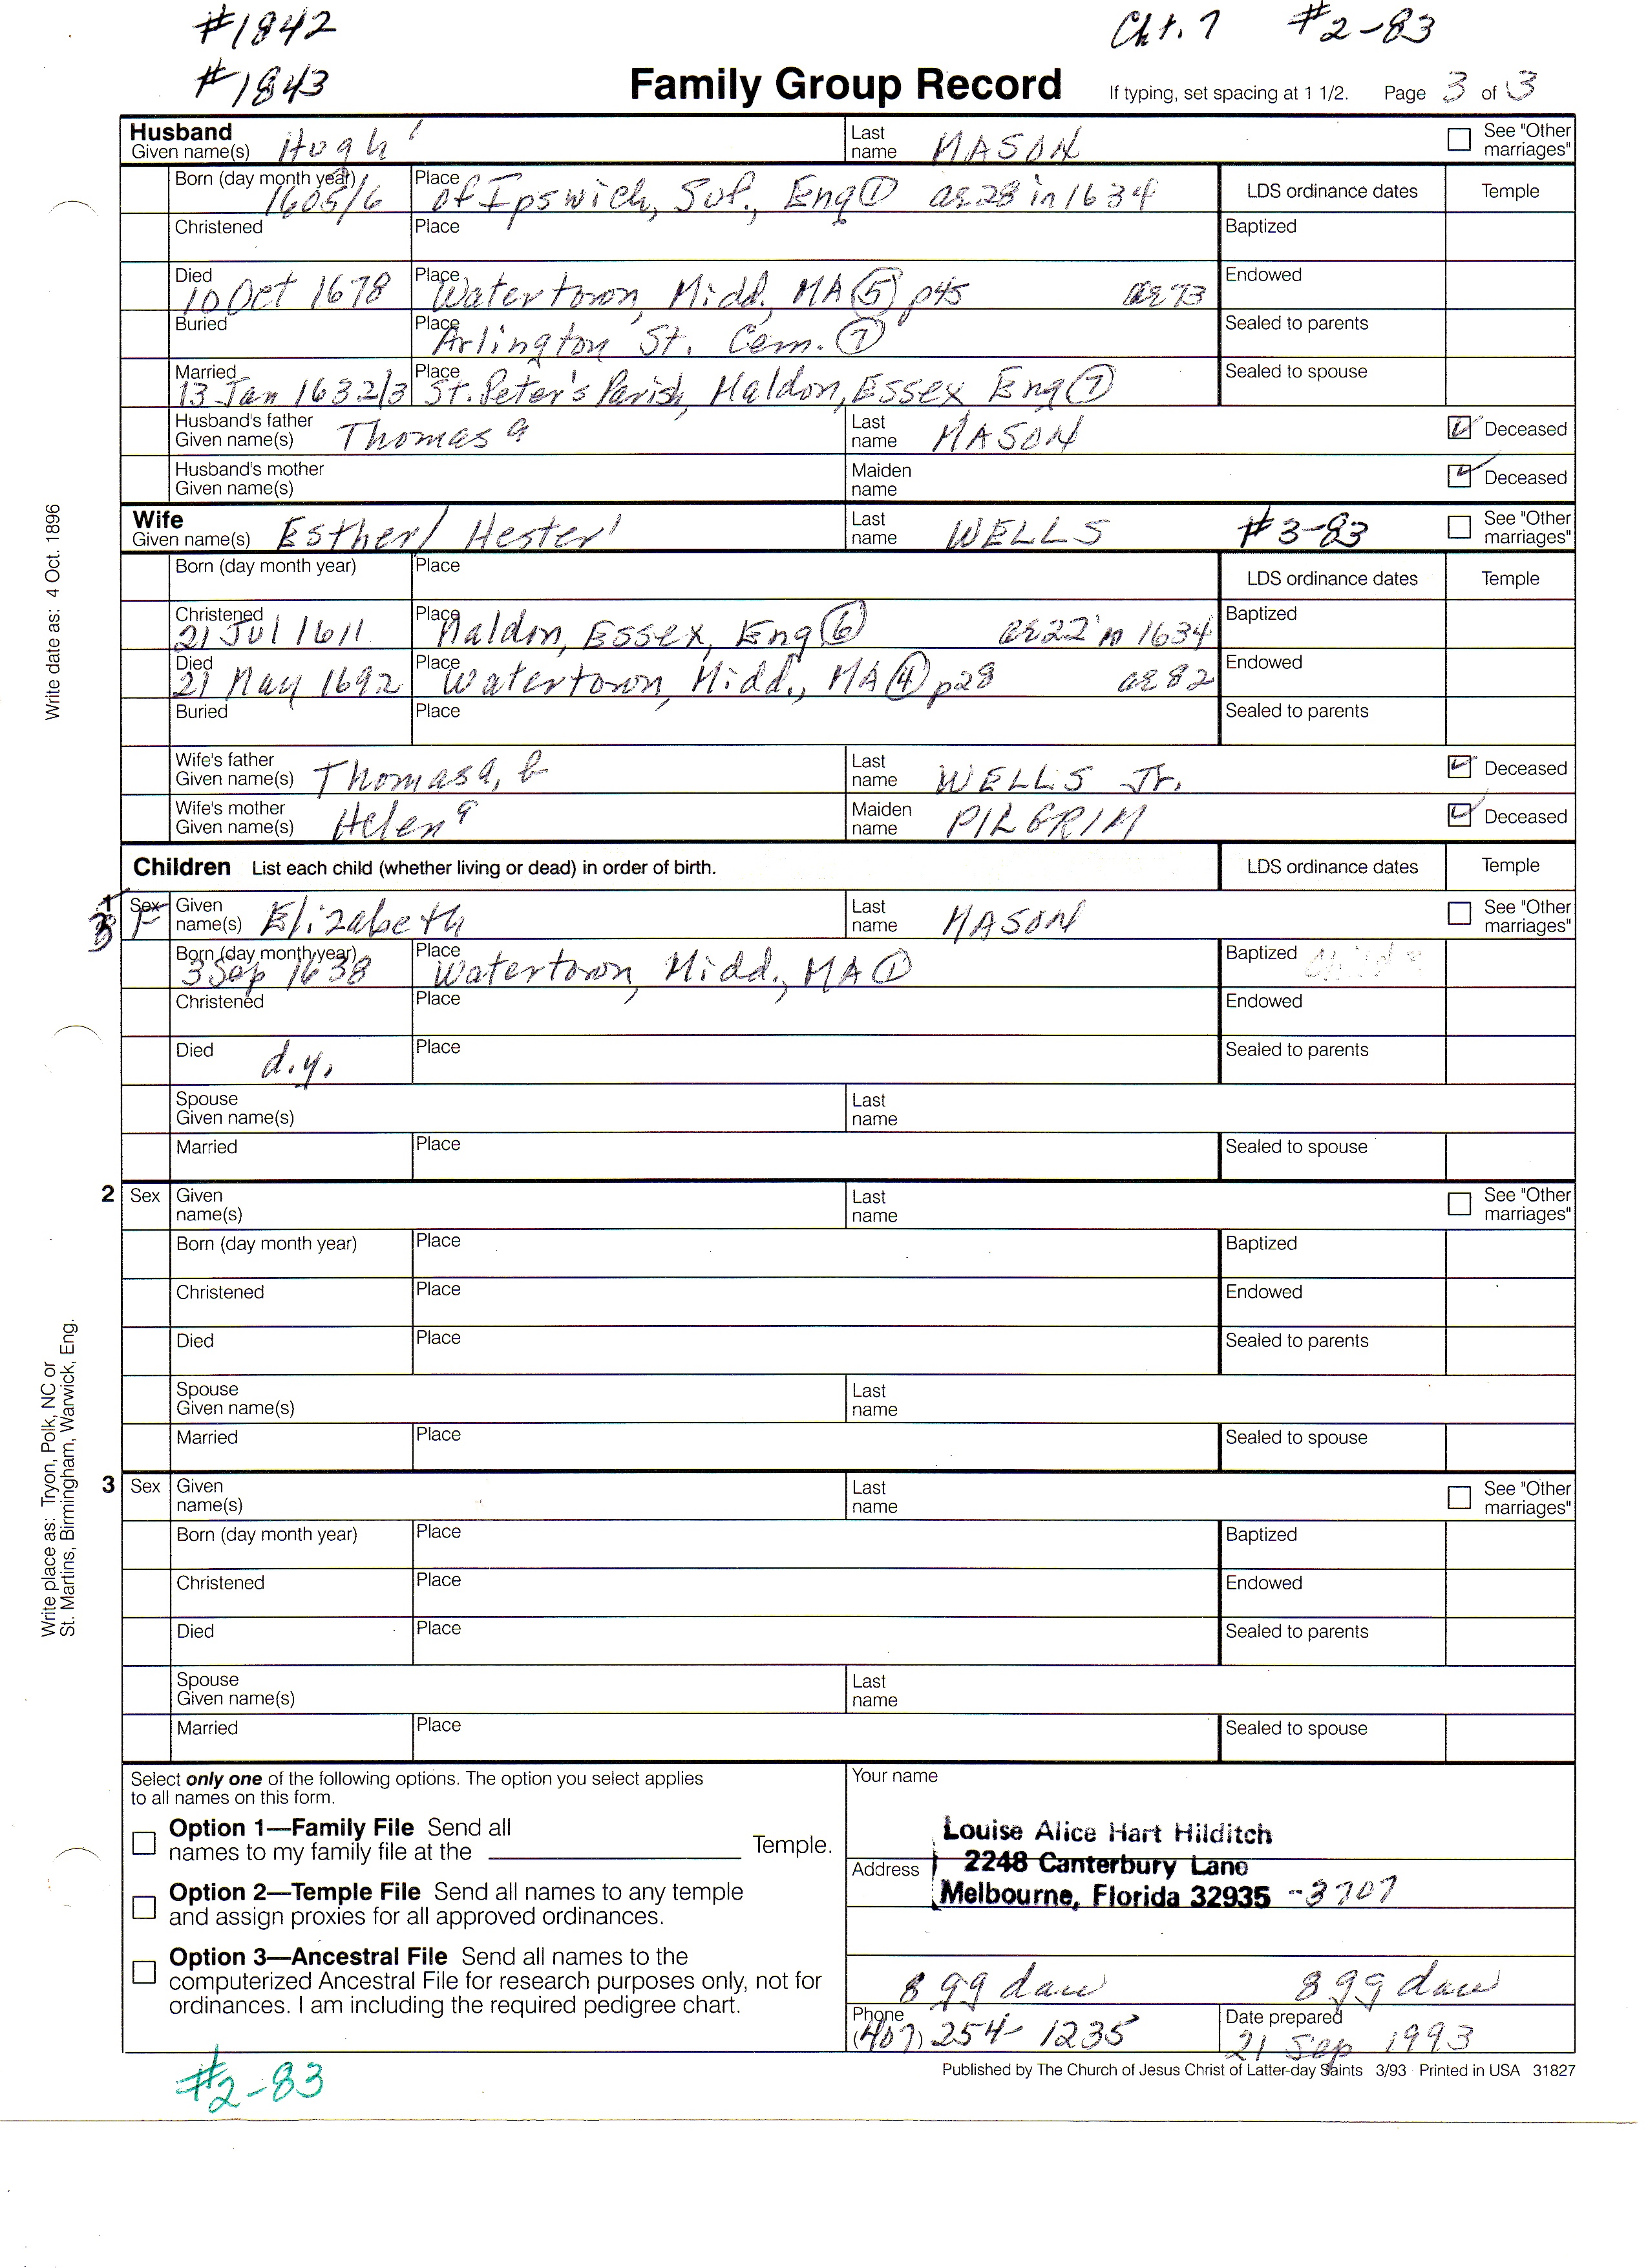 #1842
Cht. 7 #2-83
#1843
Family Group Record If typing, set spacing at 1 1/2. Page 3 of 3
Husband
Given name(s) Hugh Last name MASON See "Other marriages"
Born (day month year) 1605/6 Place of Ipswich, Suf., Eng ① ae 28 in 1634 LDS ordinance dates Temple
Christened Place Baptized
Died 10 Oct 1678 Place Watertown, Midd. MA ⑤ p45 ae 73 Endowed
Buried Place Arlington St. Cem. ⑦ Sealed to parents
Married 13 Jan 1632/3 Place St. Peter's Parish, Maldon, Essex Eng ⑦ Sealed to spouse
Husband's father
Given name(s) Thomas 9 Last name MASON Deceased
Husband's mother
Given name(s) Maiden name Deceased
Wife
Given name(s) Esther/ Hester Last name WELLS #3-83 See "Other marriages"
Born (day month year) Place LDS ordinance dates Temple
Christened 21 Jul 1611 Place Maldon, Essex, Eng ⑥ ae 22 in 1634 Baptized
Died 21 May 1692 Place Watertown, Midd., MA ④ p28 ae 82 Endowed
Buried Place Sealed to parents
Wife's father
Given name(s) Thomas 9, 6 Last name WELLS Jr. Deceased
Wife's mother
Given name(s) Helen 9 Maiden name PILGRIM Deceased
Children List each child (whether living or dead) in order of birth. LDS ordinance dates Temple
Sex F Given name(s) Elizabeth Last name MASON See "Other marriages"
Born (day month year) 3 Sep 1638 Place Watertown, Midd., MA ① Baptized child
Christened Place Endowed
Died d.y. Place Sealed to parents
Spouse
Given name(s) Last name
Married Place Sealed to spouse
2 Sex Given name(s) Last name See "Other marriages"
Born (day month year) Place Baptized
Christened Place Endowed
Died Place Sealed to parents
Spouse
Given name(s) Last name
Married Place Sealed to spouse
3 Sex Given name(s) Last name See "Other marriages"
Born (day month year) Place Baptized
Christened Place Endowed
Died Place Sealed to parents
Spouse
Given name(s) Last name
Married Place Sealed to spouse
Select only one of the following options. The option you select applies
to all names on this form.
Option 1—Family File Send all
names to my family file at the Temple.
Option 2—Temple File Send all names to any temple
and assign proxies for all approved ordinances.
Option 3—Ancestral File Send all names to the
computerized Ancestral File for research purposes only, not for
ordinances. I am including the required pedigree chart.
Your name
Louise Alice Hart Hilditch
Address 2248 Canterbury Lane
Melbourne, Florida 32935 -3707
8 gg dau 8 gg dau
Phone (407) 254-1235 Date prepared 21 Sep 1993
Published by The Church of Jesus Christ of Latter-day Saints 3/93 Printed in USA 31827
#2-83
Write date as: 4 Oct. 1896
Write place as: Tryon, Polk, NC or
St. Martins, Birmingham, Warwick, Eng.